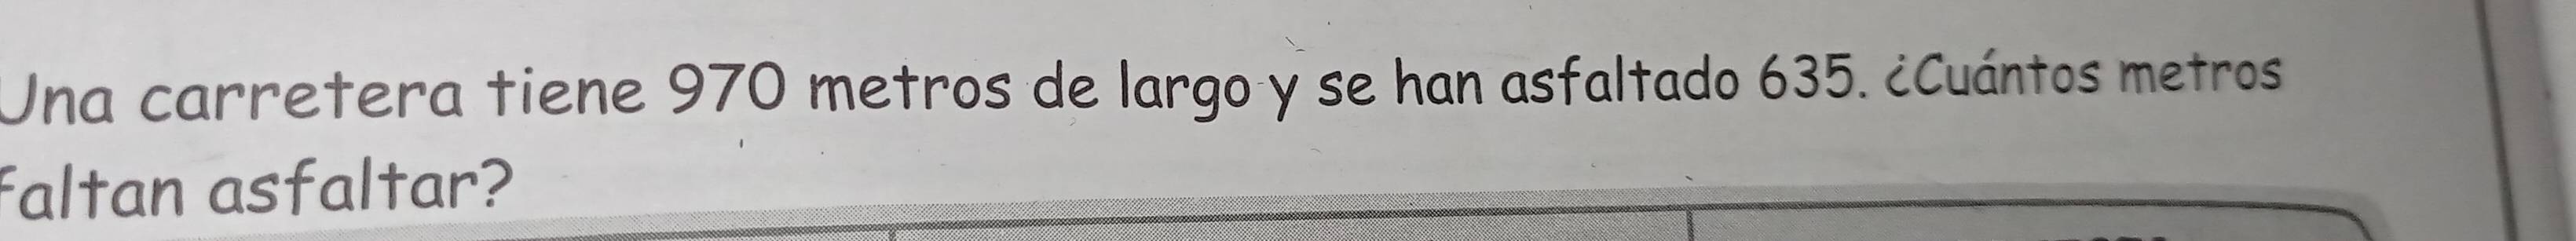 Una carretera tiene 970 metros de largo y se han asfaltado 635. ¿Cuántos metros
faltan asfaltar?